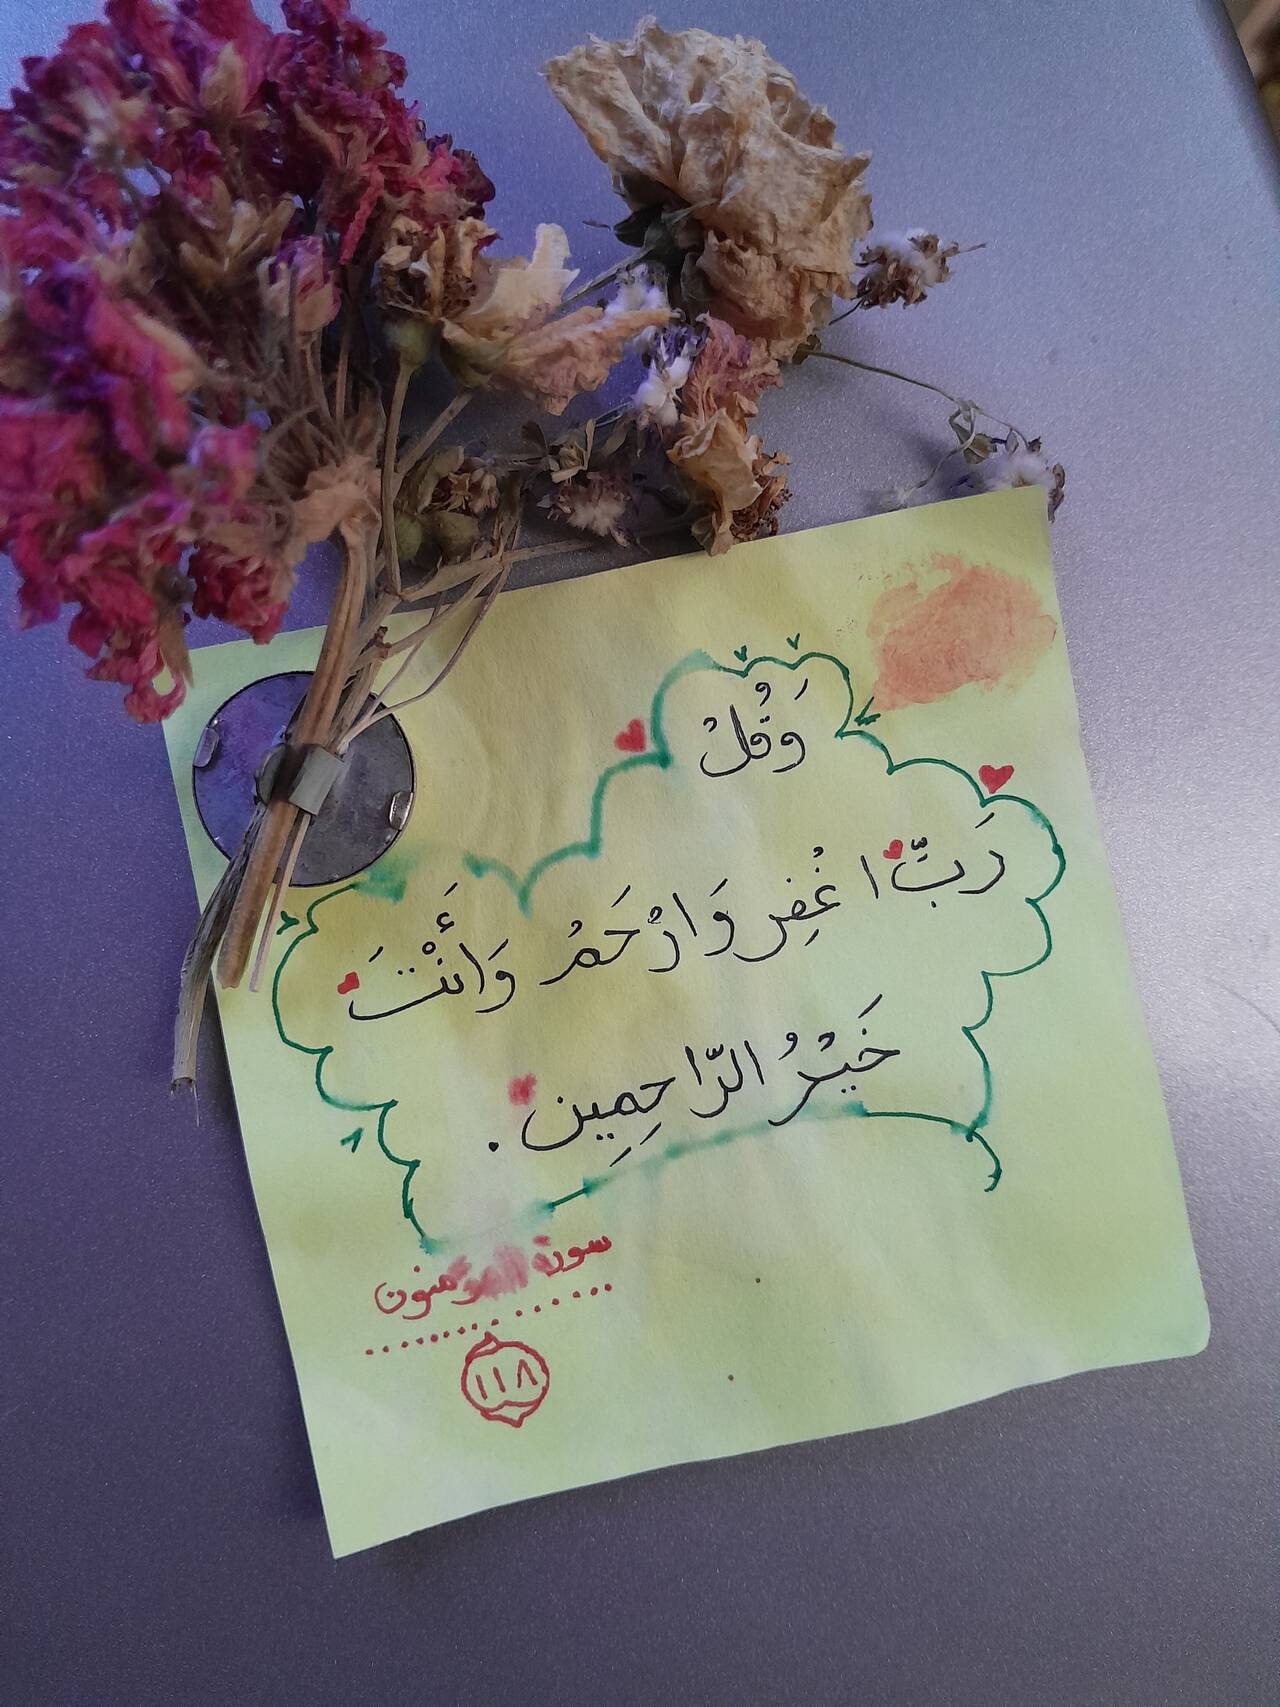 وَقُلْ
رَبِّ اغْفِر وَارْحَمْ وَأَنْتَ
خَيْرُ الرَّاحِمِين.
سورة المؤمنون
١١٨